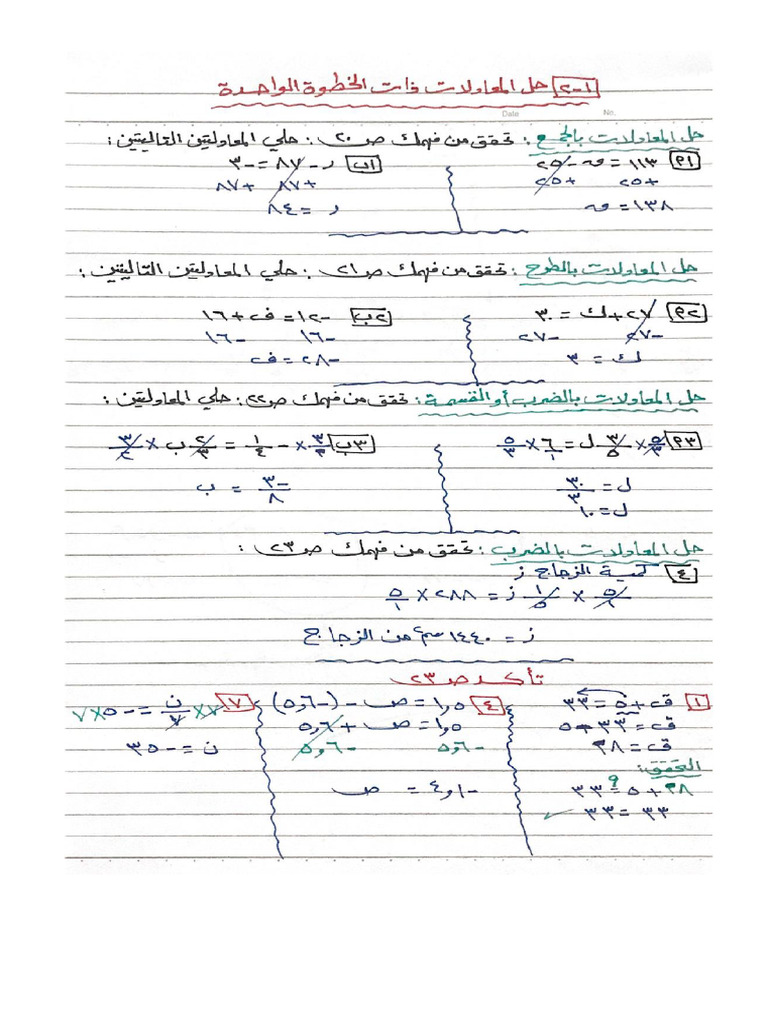 ٢-١ حل المعادلات ذات الخطوة الواحدة
Date No.
حل المعادلات بالجمع : تحقق من فهمك ص ٢٠ : حلي المعادلتين التاليتين :
١أ ١١٣ = هـ - ٢٥ ١ب ر - ٨٧ = -٣
+٢٥ +٢٥ +٨٧ +٨٧
١٣٨ = هـ ر = ٨٤
حل المعادلات بالطرح : تحقق من فهمك ص ٢١ : حلي المعادلتين التاليتين :
٢أ ٢٧ + ك = ٣٠ ٢ب -١٢ = ف + ١٦
-٢٧ -٢٧ -١٦ -١٦
ك = ٣ -٢٨ = ف
حل المعادلات بالضرب أو القسمة : تحقق من فهمك ص ٢٢ : حلي المعادلتين :
٣أ ٥/٣ × ٣/٥ ل = ٦/١ × ٥/٣ ٣ب ٣/٢ × -١/٤ = ٢/٣ ب × ٣/٢
ل = ٣٠/٣ -٣/٨ = ب
ل = ١٠
حل المعادلات بالضرب : تحقق من فهمك ص ٢٣ :
٤ كمية الزجاج ز
٥/١ × ١/٥ ز = ٢٨٨ × ٥/١
ز = ١٤٤٠ سم٣ من الزجاج
تأكد ص ٢٣
١ ق + ٥ = ٣٣ ٤ ١,٥ = ص - (-٥,٦) ٧ ٧ × ن/٧ = -٥ × ٧
ق = ٣٣ - ٥ ١,٥ = ص + ٥,٦ ن = -٣٥
ق = ٢٨ -٥,٦ -٥,٦
التحقق :
٢٨ + ٥ =؟ ٣٣ -٤,١ = ص
٣٣ = ٣٣ ✓